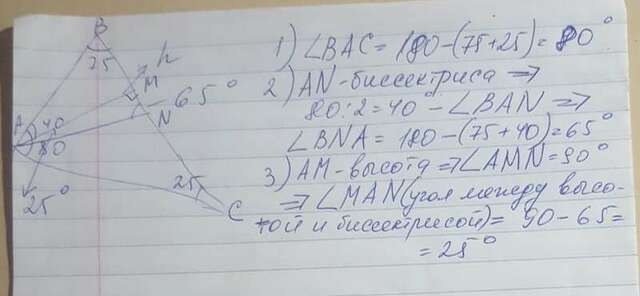 B
75
h
M
65°
N
A
40
80
25°
25
C
1) ∠BAC = 180 - (75+25) = 80°
2) AN - биссектриса ⇒
80:2 = 40° - ∠BAN ⇒
∠BNA = 180 - (75+40) = 65°
3) AM - высота ⇒ ∠AMN = 90°
⇒ ∠MAN (угол между высо-
той и биссектрисой) = 90 - 65 =
= 25°